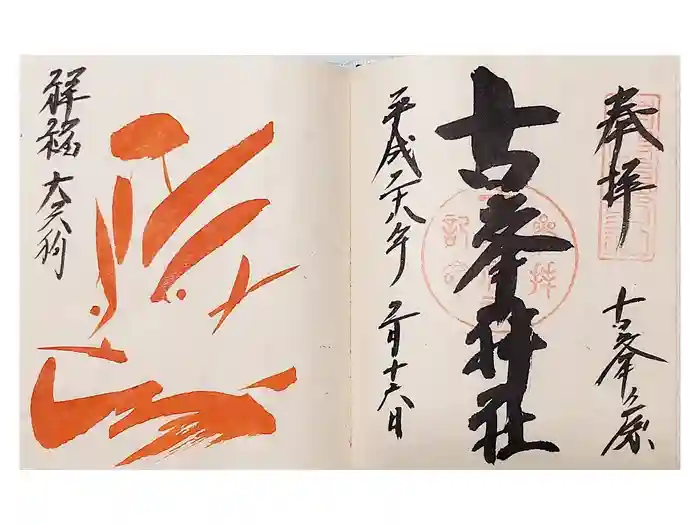 奉拝
古峯ヶ原
古峯神社
平成二十八年 二月十六日
祥福 大天狗